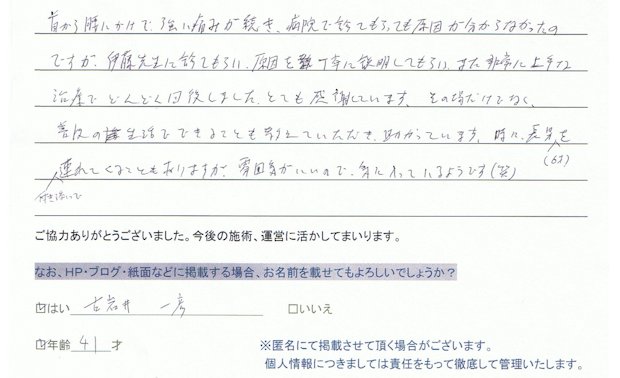 首から腰にかけて強い痛みが続き、病院で診てもらっても原因が分からなかったの
ですが、伊藤先生に診てもらい、原因を丁寧に説明してもらい、また非常に上手な
治療でどんどん回復しました。とても感謝しています。その場だけでなく、
普段の生活でできることも教えていただき、助かっています。時に、長男を
(6才)
連れてくることもありますが、雰囲気がいいので、気に入っているようです(笑)
付き添いで
ご協力ありがとうございました。今後の施術、運営に活かしてまいります。
なお、HP・ブログ・紙面などに掲載する場合、お名前を載せてもよろしいでしょうか？
☑はい 古岩井 一彦 □いいえ
☑年齢 41 才 ※匿名にて掲載させて頂く場合がございます。
個人情報につきましては責任をもって徹底して管理いたします。